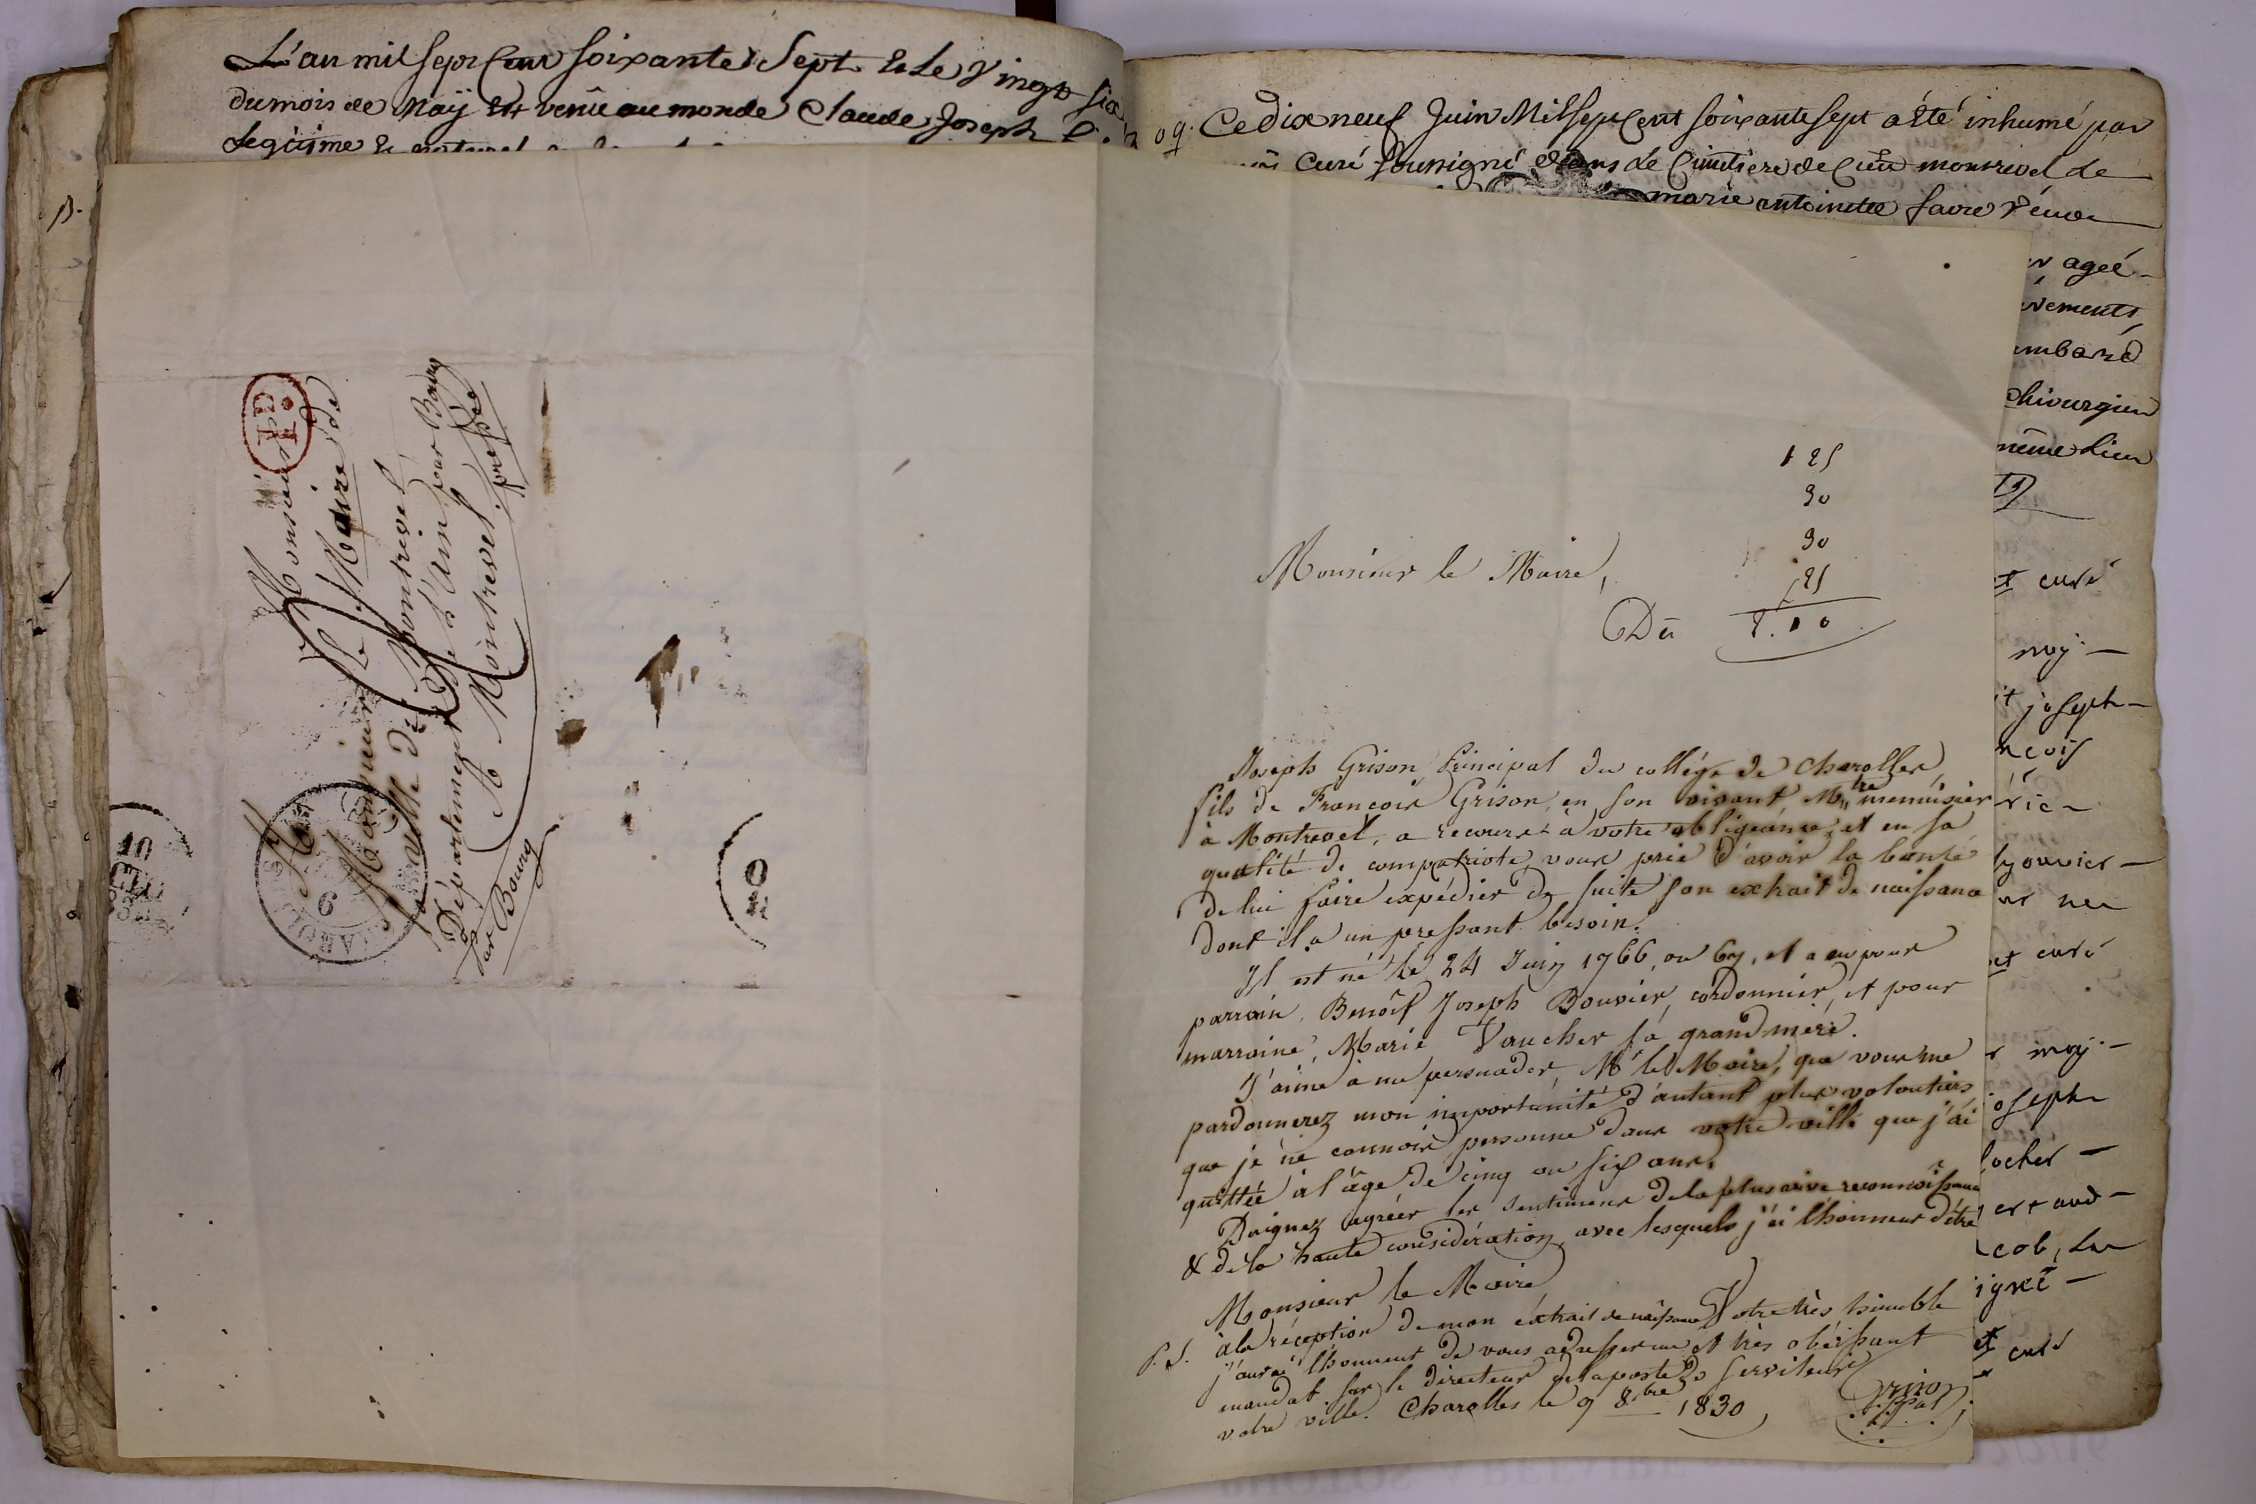 L'an mil sept Cent soixante Sept & Le Vingt six
du mois de May Est venû au monde Claude Joseph
Legitime &
Monsieur
Le Maire de
PP.
Monsieur le Maire de
la ville de Montrevel
Département De l'Ain, par Bourg
A Montrevel.
pressée
par Bourg
9
10
Ce dix neuf Juin Mil sept Cent soixante sept a été inhumé par
curé soussigné dans Le Cimetiere de montrevel de
marie antoinette favre veuve
ageé
chirurgien
même Lieu
et curé
moy
joseph
et curé
moy
joseph
curé
1 25
30
30
,25
Monsieur le Maire,
Dû 2.10
Joseph Grison, Principal du collége de Charolles,
fils de François Grison, en son vivant Mtre menuisier
à Montrevel, a recours à votre obligeance, et en sa
qualité de compatriote, vous prie d'avoir la bonté
de lui faire expédier de suite son extrait de naissance
dont il a un pressant besoin.
Il est né le 24 Juin 1766, ou 67, et a eu pour
parrain, Benoît Joseph Bouvier, cordonnier, et pour
marraine, Marie Vaucher sa grand-mère.
J'aime à me persuader, Mr le Maire, que vous me
pardonnerez mon importunité d'autant plus volontiers,
que je ne connois personne dans votre ville que j'ai
quittée à l'âge de cinq ou six ans.
Daignez agréer les sentimens de la plus vive reconnoissance
& de la haute considération avec lesquels j'ai l'honneur d'être
Monsieur le Maire
Votre très humble
et très obéissant
serviteur
Grison
P.S. à la réception de mon extrait de naissance
j'aurai l'honneur de vous adresser un
mandat sur le directeur de la poste de
votre ville. Charolles le 9 8bre 1830